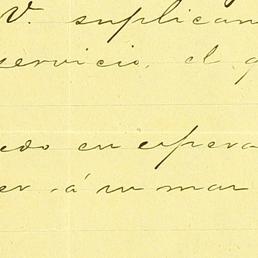 V. suplican
servicio, el q
edo en espera
er á su man